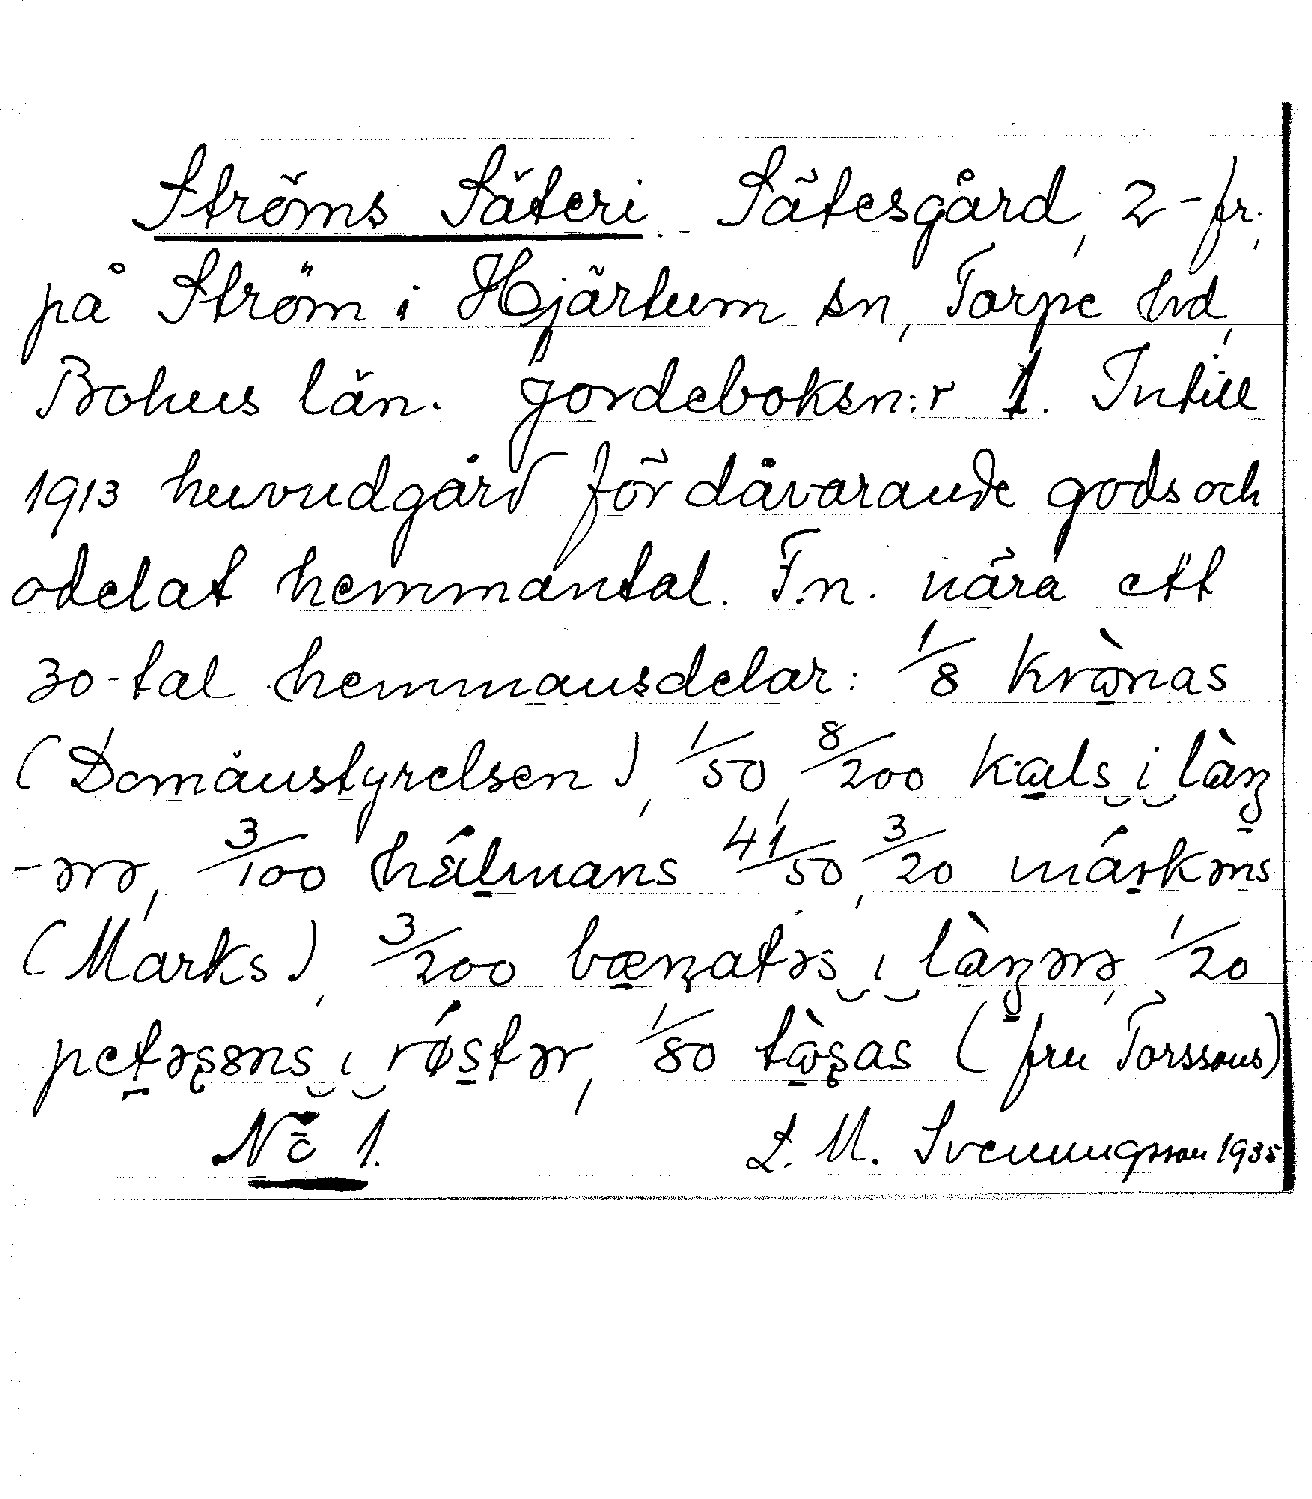 Ströms Säteri Sätesgård, 2-fr.,
på Ström i Hjärtum sn, Torpe hd,
Bohus län. Jordeboksn:r 1. Intill
1913 huvudgård för dåvarande gods och
odelat hemmantal. F.n. nära ett
30-tal hemmansdelar: 1/8 krὼnas
(Domänstyrelsen), 1/50, 8/200 kals i làŋ
-ərə, 3/100 hálmans 41/50, 3/20 márkəns
(Marks), 3/200 bæŋatəs i làŋərə, 1/20
petəʂɵns i rǿstər, 1/80 tὼʂas (fru Torssons)
No 1. L. M. Svenungsson 1935